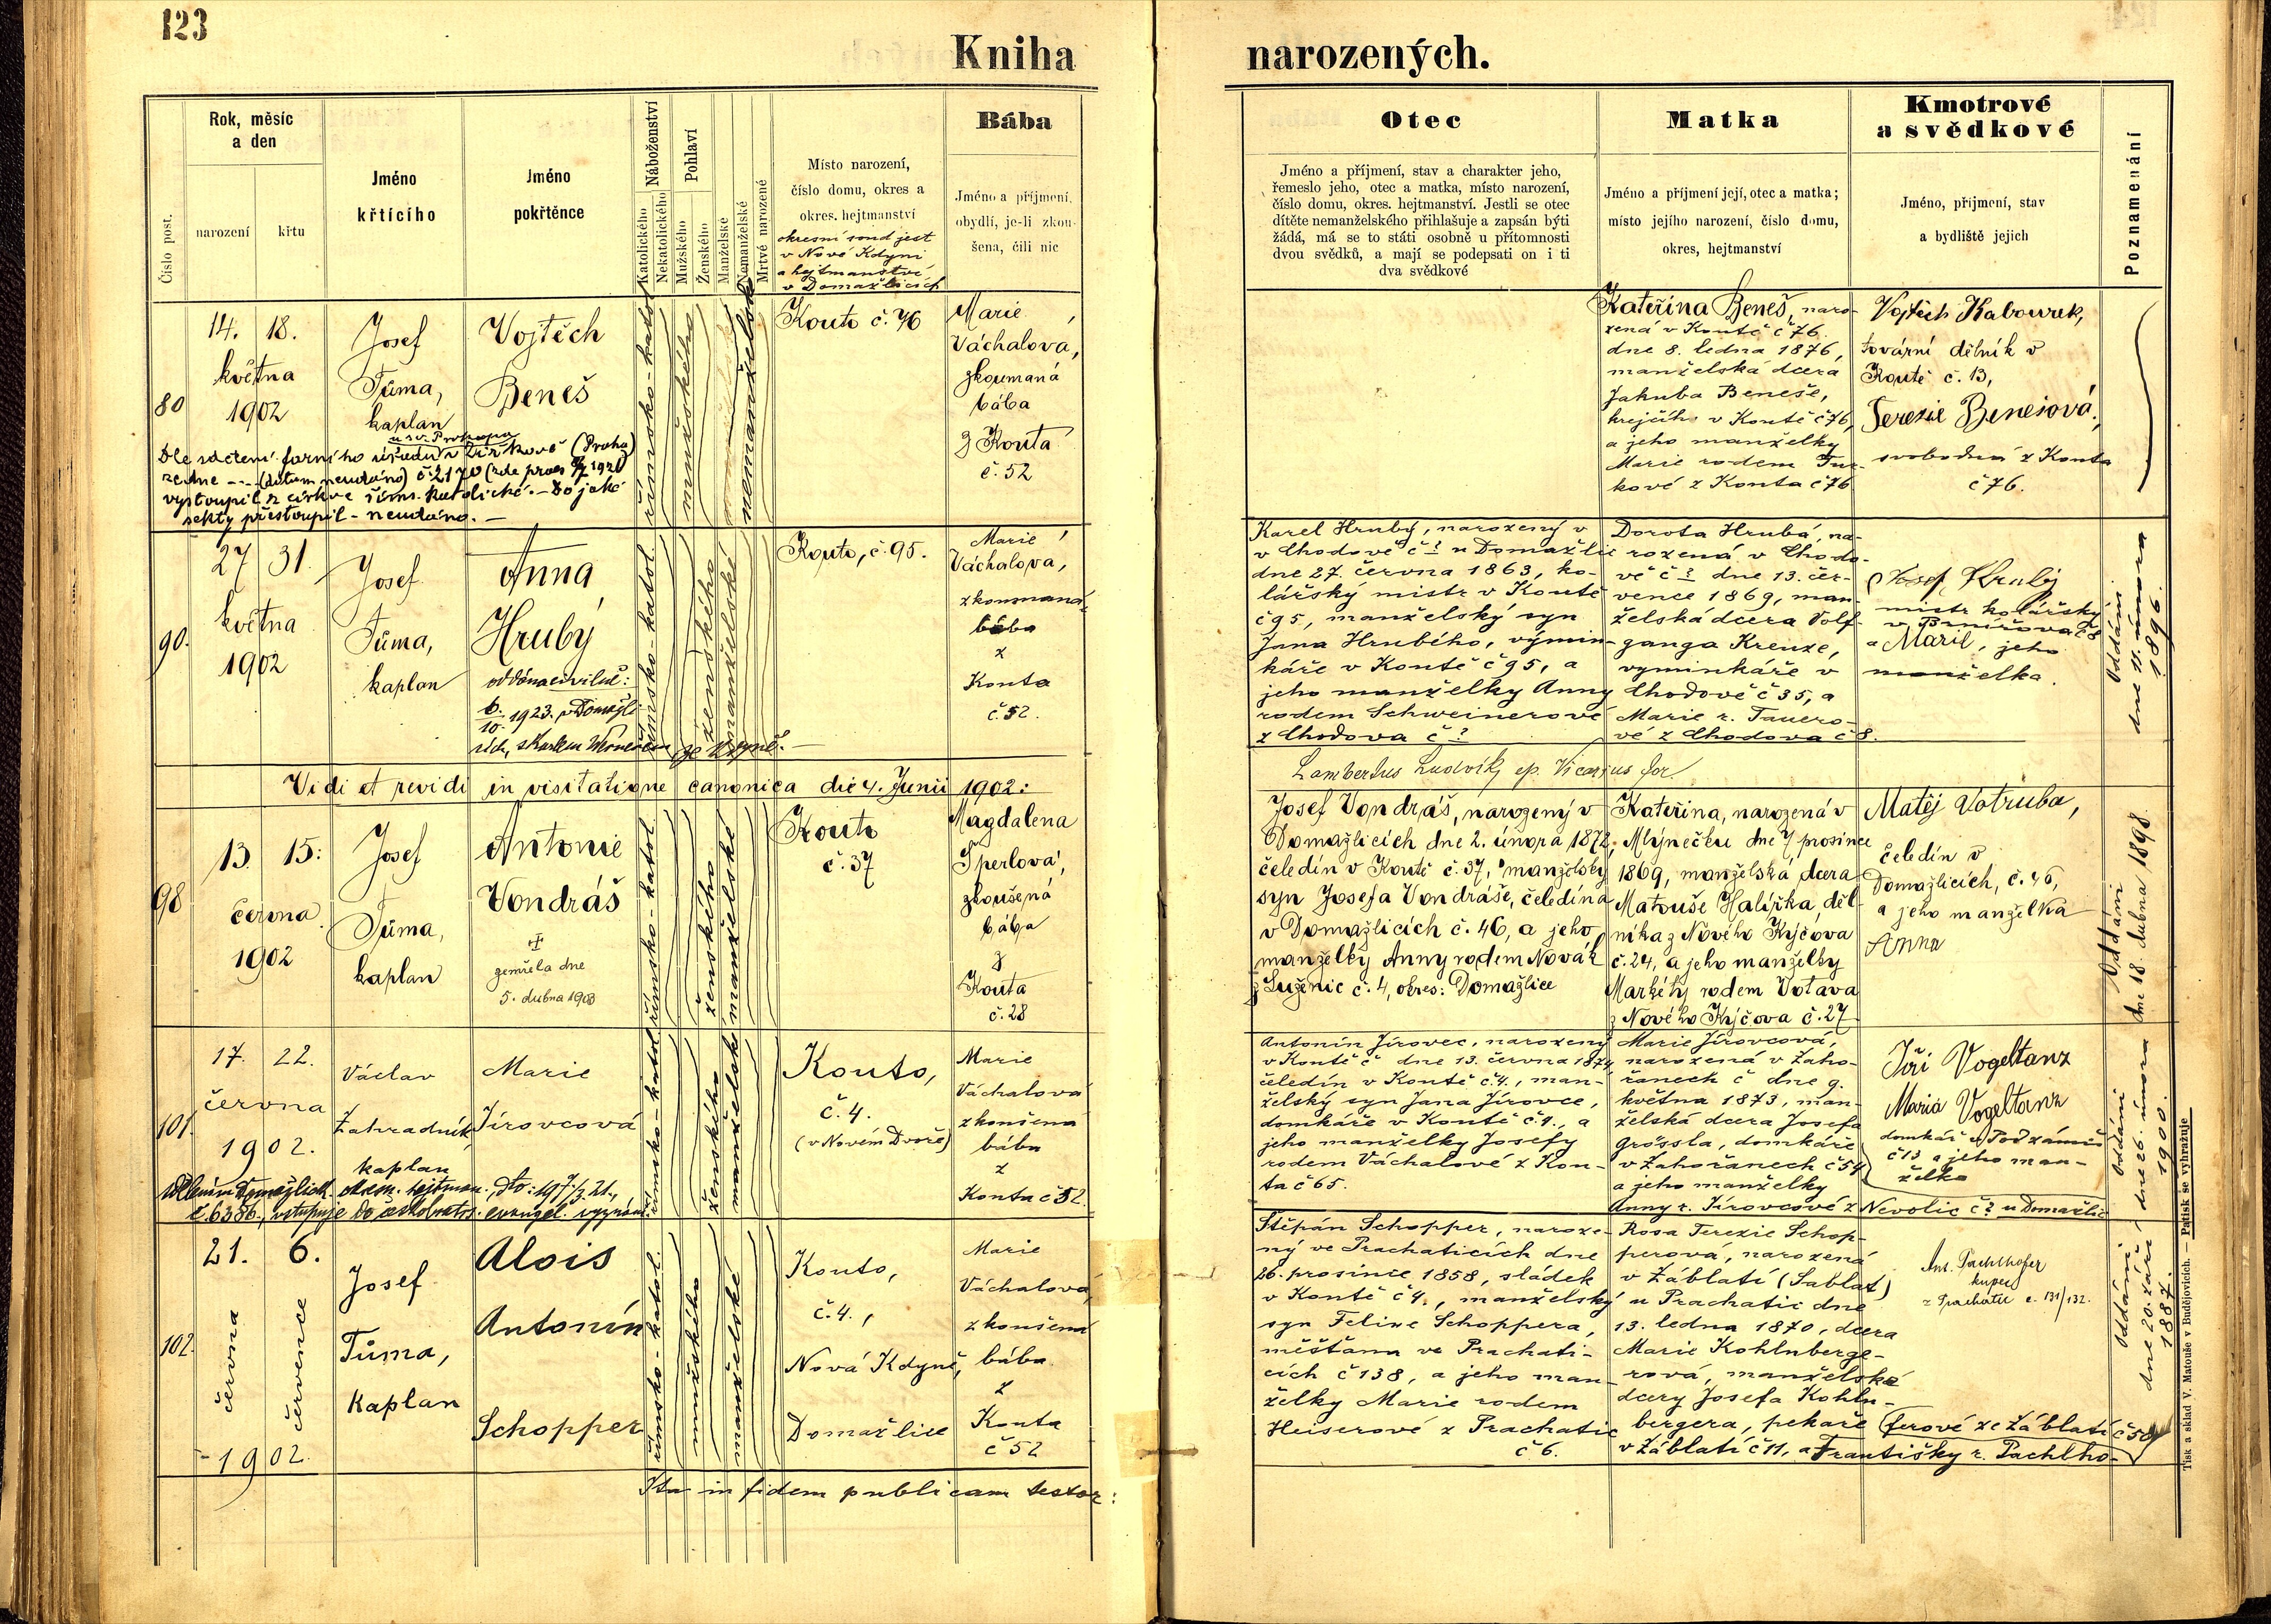 123
Kniha narozených.
Číslo post.
Rok, měsíc
a den
narození
křtu
Jméno
křtícího
Jméno
pokřtěnce
Náboženství
Katolického
Nekatolického
Pohlaví
Mužského
Ženského
Manželské
Nemanželské
Mrtvé narozené
Místo narození,
číslo domu, okres a
okres. hejtmanství
okresní soud jest
v Nové Kdyni
a hejtmanství
v Domažlicích
Bába
Jméno a příjmení,
obydlí, je-li zkou-
šena, čili nic
Otec
Jméno a příjmení, stav a charakter jeho,
řemeslo jeho, otec a matka, místo narození,
číslo domu, okres. hejtmanství. Jestli se otec
dítěte nemanželského přihlašuje a zapsán býti
žádá, má se to státi osobně u přítomnosti
dvou svědků, a mají se podepsati on i ti
dva svědkové
Matka
Jméno a příjmení její, otec a matka;
místo jejího narození, číslo domu,
okres, hejtmanství
Kmotrové
a svědkové
Jméno, příjmení, stav
a bydliště jejich
Poznamenání
80
14. 18.
května
1902
Josef
Tůma,
kaplan
Vojtěch
Beneš
římsko-katol.
mužského
nemanželské
Kouto č. 76
Marie
Váchalova,
zkoumaná
bába
z Kouta
č. 52
u sv. Prokopa
Dle sdělení farního úřadu v Žižkově (Praha)
ze dne --- (datum neudáno)
vystoupil z církve řím. katolické. - Do jaké
sekty přestoupil - neudáno. -
Kateřina Beneš, naro-
zená v Koutě č 76
dne 8. ledna 1876,
manželská dcera
Jakuba Beneše,
krejčího v Koutě č 76,
a jeho manželky
Marie rodem
kové z Kouta č 76
Vojtěch Kabourek,
tovární dělník v
Koutě č. 13,
Terezie Benešová,
svobodná z Kouta
č 76.
90.
27 31.
května
1902
Josef
Tůma,
kaplan
Anna
Hrubý
oddána civilně:
6./10. 1923. v Domažli-
cích, s Karlem
římsko-katol.
ženského
manželské
Kouto, č. 95.
Marie
Váchalova,
zkoumaná
bába
z
Kouta
č. 52.
Karel Hrubý, narozený v
v Chodově č ? u Domažlic
dne 27. června 1863, ko-
lářský mistr v Koutě
č 95, manželský syn
Jana Hrubého, výmin-
káře v Koutě č 95, a
jeho manželky Anny
rodem Schweinerové
z Chodova č ?
Dorota Hrubá, na-
rozená v Chodo-
vě č ? dne 13. čer-
vence 1869, man-
želská dcera Volf-
ganga Kreuze,
vyminkáře v
Chodově č 35, a
Marie r. Tauero-
vé z Chodova č 8.
Josef Hrubý
mistr kolářský
a Marie, jeho
manželka.
Oddáni
dne 11. února
1896.
Vidi et revidi in visitatione canonica die 4. Junii 1902:
Lambertus Ludvík, ep. Vicarius for.
98
13. 15:
června
1902
Josef
Tůma,
kaplan
Antonie
Vondráš
zemřela dne
5. dubna 1903
římsko-katol.
ženského
manželské
Kouto
č. 37
Magdalena
Šperlova,
zkoušená
bába
z
Kouta
č. 28
Josef Vondráš, narozený v
Domažlicích dne 2. února 1872,
čeledín v Koutě č. 37, manželský
syn Josefa Vondráše, čeledína
v Domažlicích č. 46, a jeho
manželky Anny rodem Novák
z Luženic č. 4, okres: Domažlice
Kateřina, narozená v
Mlýnečku dne 7 prosince
1869, manželská dcera
Matouše Halířka, děl-
níka z Nového Kýčova
č. 24, a jeho manželky
Markéty rodem Votava
z Nového Kýčova č. 27
Matěj Votruba,
čeledín v
Domažlicích, č. 46,
a jeho manželka
Anna
Oddáni
dne 18. dubna 1898.
101.
17. 22.
června
1902.
Václav
Zahradník
kaplan
Marie
Jírovcová
římsko-katol.
ženského
manželské
Kouto,
č. 4.
(v Novém Dvoře)
Marie
Váchalova
zkoušena
bába
z
Kouta č 52.
č. 6386, vstupuje do českobratrs. evangel. vyznání.
Antonín Jírovec, narozený
v Koutě č dne 13. června 1874,
čeledín v Koutě č. 4., man-
želský syn Jana Jírovce,
domkáře v Koutě č. 4., a
jeho manželky Josefy
rodem Váchalové z Kou-
ta č 65.
Marie Jírovcová,
narozená v Zaho-
řanech č dne 9.
května 1873, man-
želská dcera Josefa
Grössla, domkáře
v Zahořanech č 54
a jeho manželky
Anny r. Jírovcové z Nevolic č ? u Domažlic
Jiří Vogeltanz
Maria Vogeltanz
domkář v Podzámčí
č 13 a jeho man-
želka
Oddáni
dne 26. února
1900.
102.
21. 6.
června
července
1902.
Josef
Tůma,
kaplan
Alois
Antonín
Schopper
římsko-katol.
mužského
manželské
Kouto,
č. 4.,
Nová Kdyně,
Domažlice
Marie
Váchalová,
zkoušená
bába
z
Kouta
č 52
Štěpán Schopper, naroze-
ný ve Prachaticích dne
26. prosince 1858, sládek
v Koutě č 4., manželský
syn Felixe Schoppera,
měšťana ve Prachati-
cích č 138, a jeho man-
želky Marie rodem
Heiserové z Prachatic
č 6.
Rosa Terezie Schop-
perová, narozená
v Záblatí (Sablat)
u Prachatic dne
13. ledna 1870, dcera
Marie Kohlnberge-
rová, manželské
dcery Josefa Kohln-
bergera, pekaře
v Záblatí č 11, a Františky r. Pachlho-
ferové ze Záblatí č 50
Ant. Pachlhofer
kupec
z Prachatic č. 131/132.
Oddáni
dne 20. září
1887.
Ita in fidem publicam testor:
Tisk a sklad V. Matouše v Budějovicích. — Patisk se vyhražuje